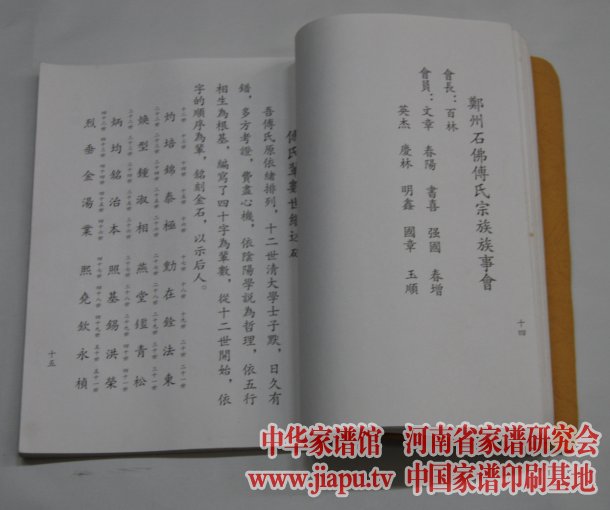 鄭州石佛傅氏宗族族事會
會長：百林
會員：文章 春陽 書喜 强國 春增
英杰 慶林 明鑫 國章 玉順
十四
吾傅氏原依緒排列，十二世清大學士子默，日久有
錯，多方考證，費盡心機，依陰陽學説為哲理，依五行
相生為根基，編寫了四十字為輩數，從十二世開始，依
字的順序為輩，銘刻金石，以示后人。
灼培錦泰極 勳在銓法東
煥型鍾淑相 燕堂鑑青松
炳均銘治本 照基錫洪榮
烈垂金湯業 熙堯欽永楨
十五
中华家谱馆 河南省家谱研究会
www.jiapu.tv 中国家谱印刷基地